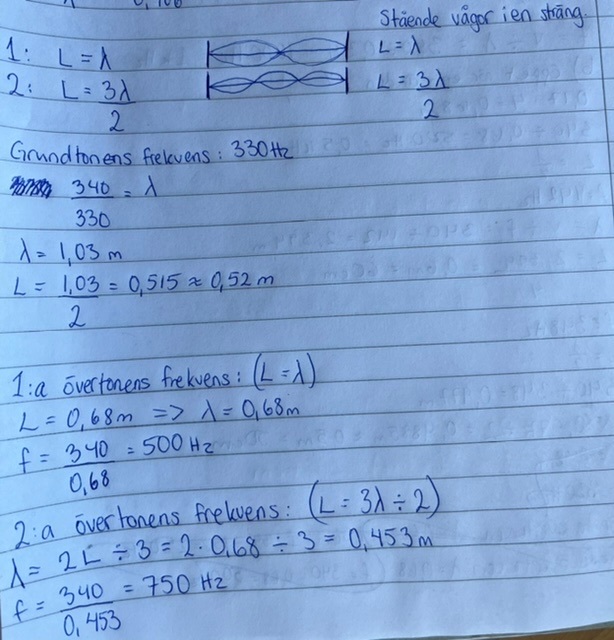 Stående vågor i en sträng.
1: L = λ
L = λ
2: L = 3λ/2
L = 3λ/2
Grundtonens frekvens: 330 Hz
340/330 = λ
λ = 1,03 m
L = 1,03/2 = 0,515 ≈ 0,52 m
1:a övertonens frekvens: (L = λ)
L = 0,68m => λ = 0,68m
f = 340/0,68 = 500 Hz
2:a övertonens frekvens: (L = 3λ ÷ 2)
λ = 2L ÷ 3 = 2 · 0,68 ÷ 3 = 0,453 m
f = 340/0,453 = 750 Hz